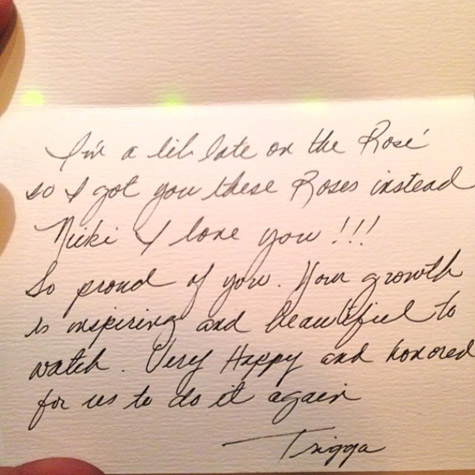 I'm a lil late on the Rosé
so I got you these Roses instead
Nicki I love you!!!
So proud of you. Your growth
is inspiring and beautiful to
watch. Very Happy and honored
for us to do it again
Trigga